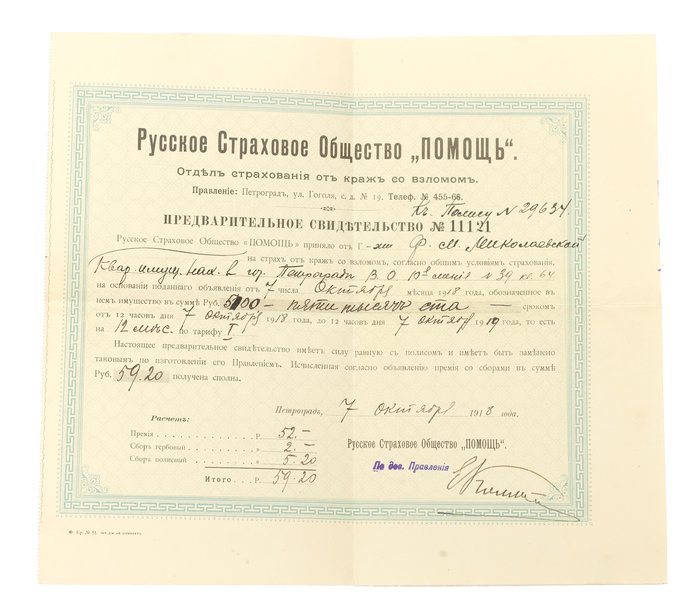 Русское Страховое Общество „ПОМОЩЬ“.
Отдѣлъ страхованія отъ кражъ со взломомъ.
Правленіе: Петроградъ, ул. Гоголя, с. д. № 19. Телеф. № 455-66.
Къ Полису № 29634
ПРЕДВАРИТЕЛЬНОЕ СВИДѢТЕЛЬСТВО № 11121
Русское Страховое Общество «ПОМОЩЬ» приняло отъ Г-жи Ф. М. Миколаевской
на страхъ отъ кражъ со взломомъ, согласно общимъ условіямъ страхованія,
Квар. имущ. нах. въ гор. Петроградъ В. О. 10я линія № 39 кв. 64
на основаніи поданнаго объявленія отъ 7 числа Октября мѣсяца 1918 года, обозначенное въ
немъ имущество въ суммѣ Руб. 5100 — пять тысячъ сто — срокомъ
отъ 12 часовъ дня 7 Октября 1918 года, до 12 часовъ дня 7 Октября 1919 года, то есть
на 12 мѣс. по тарифу I
Настоящее предварительное свидѣтельство имѣетъ силу равную съ полисомъ и имѣетъ быть замѣнено
таковымъ по изготовленіи его Правленіемъ. Исчисленная согласно объявленію премія со сборами въ суммѣ
Руб. 59.20 получена сполна.
Петроградъ, 7 Октября 1918 года.
Расчетъ:
Премія . . . . . . . . . Р. 52.—
Сборъ гербовый . . . . . . „ 2.—
Сборъ полисный . . . . . . „ 5.20
Итого . . . Р. 59.20
Русское Страховое Общество „ПОМОЩЬ“.
По дов. Правленія